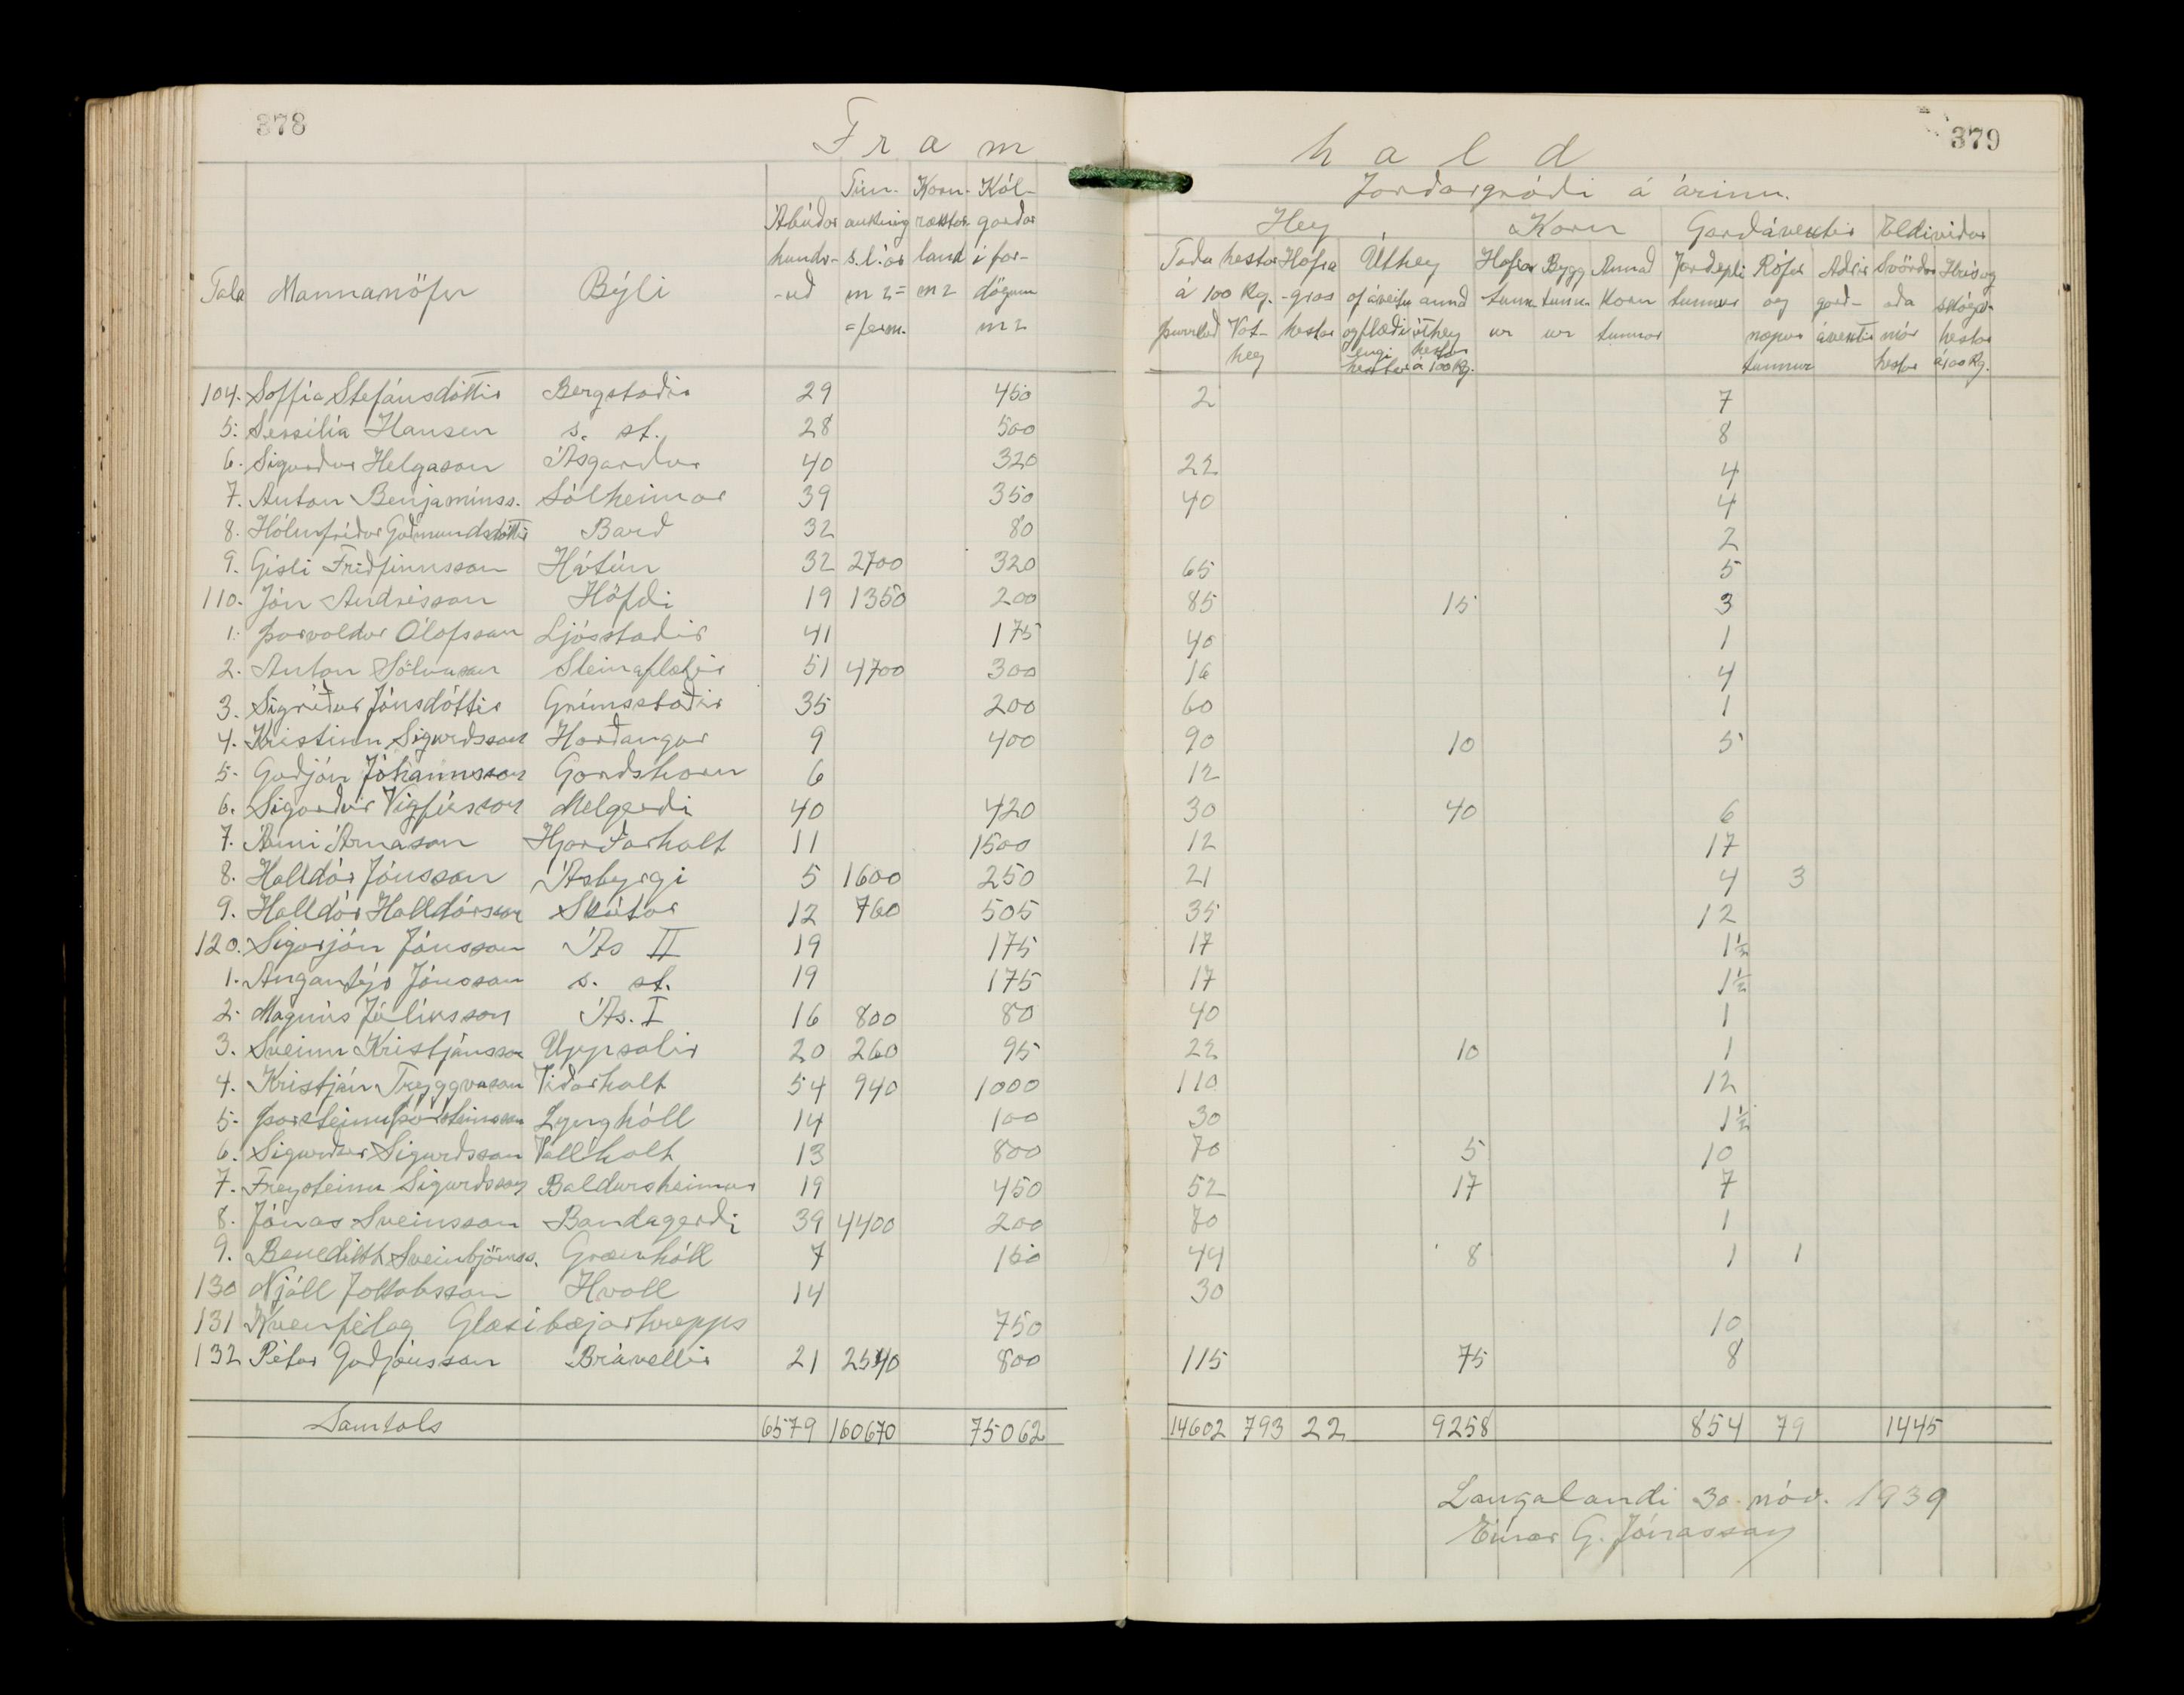 378
379
F r a m
h a l d
Jarðargróði á árinu.
Tala Mannanöfn Býli Ábúðar hundr-uð Tún-aukning s.l. ár m2= ferm. Korn-ræktar land m2 Kál-garðar í fardögum m2
Hey Korn Garðávextir Eldiviður
Taða hestar á 100 kg. þurrkað Vot-hey Hafragras hestar Úthey af áveitu og flæðiengi hestar annað úthey hestar á 100 kg. Hafrar tunnur Bygg tunnur Annað korn tunnur Jarðepli tunnur Rófur og næpur tunnur Aðrir garðávextir Svörður eða mór hestar Hrís og skógv. hestar á 100 kg.
104. Soffía Stefánsdóttir Bergstaðir 29 450 2 7
5. Sessilía Hansen s. st. 28 500 8
6. Sigurður Helgason Ásgarður 40 320 22 4
7. Anton Benjamínss. Sólheimar 39 350 40 4
8. Hólmfríður Guðmundsdóttir Barð 32 80 2
9. Gísli Friðfinnsson Hátún 32 2700 320 65 5
110. Jón Andrésson Höfði 19 1350 200 85 15 3
1. Þorvaldur Ólafsson Ljósstaðir 41 175 40 1
2. Anton Sölvason Steinaflatir 51 4700 300 16 4
3. Sigríður Jónsdóttir Grímsstaðir 35 200 60 1
4. Kristinn Sigurðsson Harðangur 9 400 90 10 5
5. Guðjón Jóhannsson Garðshorn 6 12
6. Sigurður Vigfússon Melgerði 40 420 30 40 6
7. Árni Árnason Hjarðarholt 11 1500 12 17
8. Halldór Jónsson Ásbyrgi 5 1600 250 21 4 3
9. Halldór Halldórsson Skútar 12 760 505 35 12
120. Sigurjón Jónsson Ás II 19 175 17 1½
1. Angantýr Jónsson s. st. 19 175 17 1½
2. Magnús Júlíusson Ás. I 16 800 80 40 1
3. Sveinn Kristjánsson Uppsalir 20 260 95 22 10 1
4. Kristján Tryggvason Viðarholt 54 940 1000 110 12
5. Þorsteinn Þorsteinsson Lynghóll 14 100 30 1½
6. Sigurður Sigurðsson Vallholt 13 800 70 5 10
7. Freysteinn Sigurðsson Baldursheimur 19 450 52 17 7
8. Jónas Sveinsson Bandagerði 39 4400 200 70 1
9. Benedikt Sveinbjörnss. Grænhóll 7 150 44 8 1 1
130 Njáll Jakobsson Hvoll 14 30
131 Kvenfélag Glæsibæjarhrepps 750 10
132 Pétur Guðjónsson Brávellir 21 2540 800 115 75 8
Samtals 6579 160670 75062 14602 793 22 9258 854 79 1445
Laugalandi 30. nóv. 1939
Einar G. Jónasson